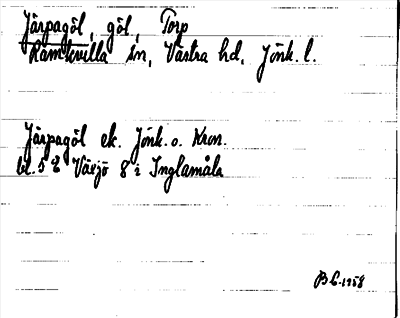 Järpagöl, göl, Torp
Ramkvilla sn, Västra hd, Jönk. l.
Järpagöl ek. Jönk. o. Kron.
bl. 5 E Växjö 8 i Inglamåla
B G. 1958